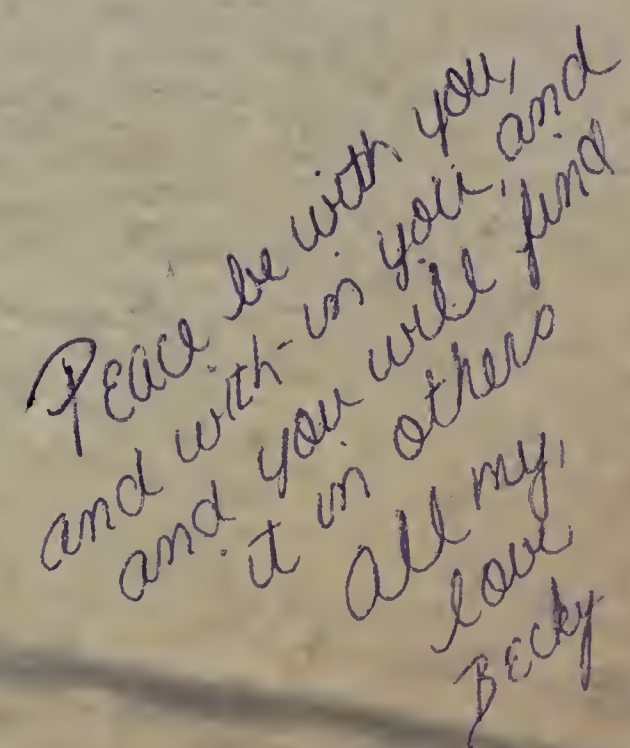 Peace be with you,
and with-in you, and
and you will find
it in others
All my,
love
Becky